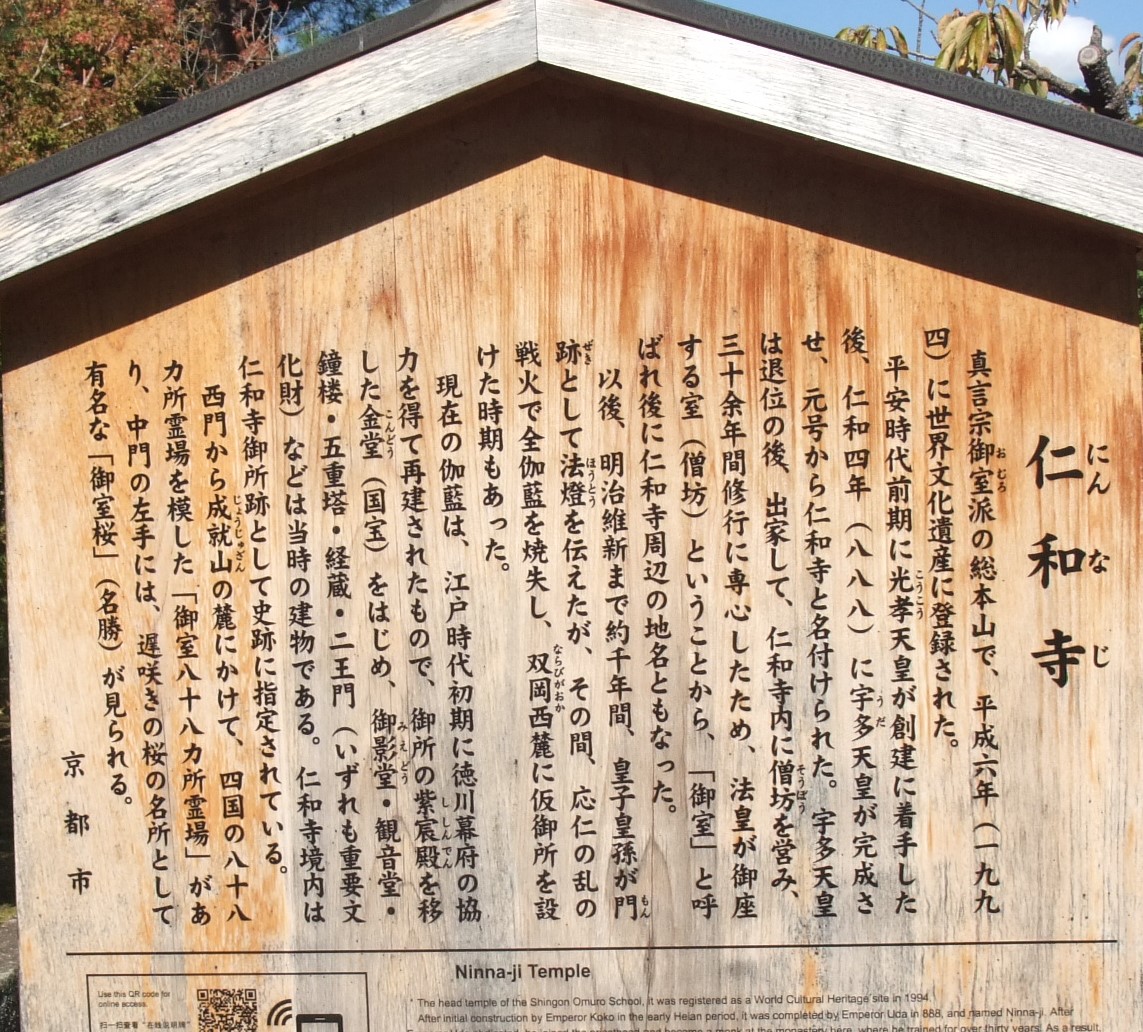 仁和寺
真言宗御室派の総本山で、平成六年（一九九
四）に世界文化遺産に登録された。
平安時代前期に光孝天皇が創建に着手した
後、仁和四年（八八八）に宇多天皇が完成さ
せ、元号から仁和寺と名付けられた。宇多天皇
は退位の後、出家して、仁和寺内に僧坊を営み、
三十余年間修行に専心したため、法皇が御座
する室（僧坊）ということから、「御室」と呼
ばれ後に仁和寺周辺の地名ともなった。
以後、明治維新まで約千年間、皇子皇孫が門
跡として法燈を伝えたが、その間、応仁の乱の
戦火で全伽藍を焼失し、双岡西麓に仮御所を設
けた時期もあった。
現在の伽藍は、江戸時代初期に徳川幕府の協
力を得て再建されたもので、御所の紫宸殿を移
した金堂（国宝）をはじめ、御影堂・観音堂・
鐘楼・五重塔・経蔵・二王門（いずれも重要文
化財）などは当時の建物である。仁和寺境内は
仁和寺御所跡として史跡に指定されている。
西門から成就山の麓にかけて、四国の八十八
カ所霊場を模した「御室八十八カ所霊場」があ
り、中門の左手には、遅咲きの桜の名所として
有名な「御室桜」（名勝）が見られる。
京都市
Ninna-ji Temple
Use this QR code for
online access.
The head temple of the Shingon Omuro School, it was registered as a World Cultural Heritage site in 1994.
After initial construction by Emperor Koko in the early Heian period, it was completed by Emperor Uda in 888, and named Ninna-ji. After
at the monastery here, where he trained for over thirty years. As a result,